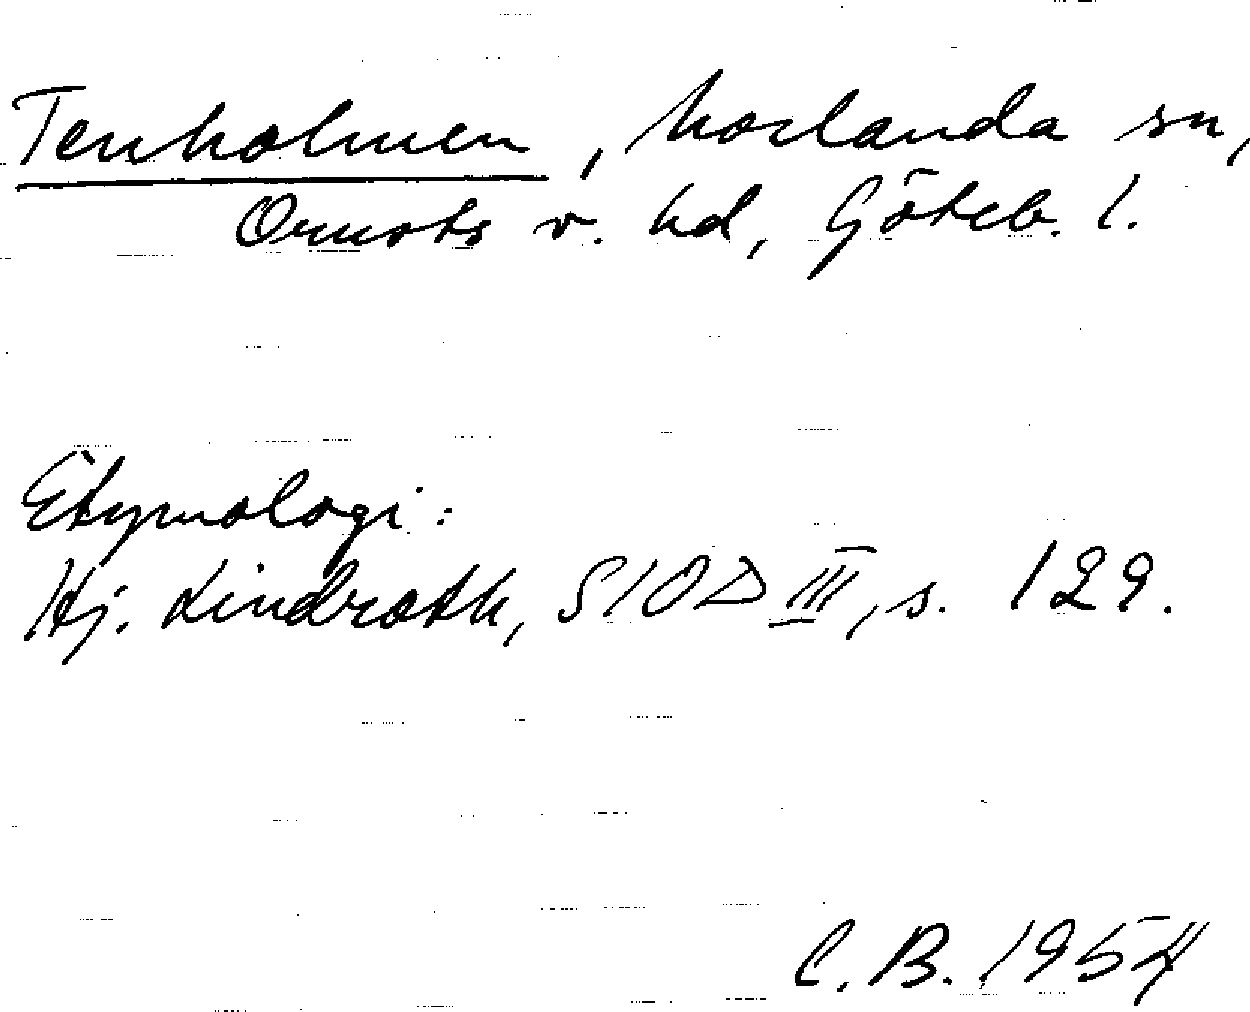 Tenholmen, Morlanda sn,
Orusts v. hd, Göteb. l.
Etymologi:
Hj. Lindroth, SIOD III, s. 129.
C. B. 1954